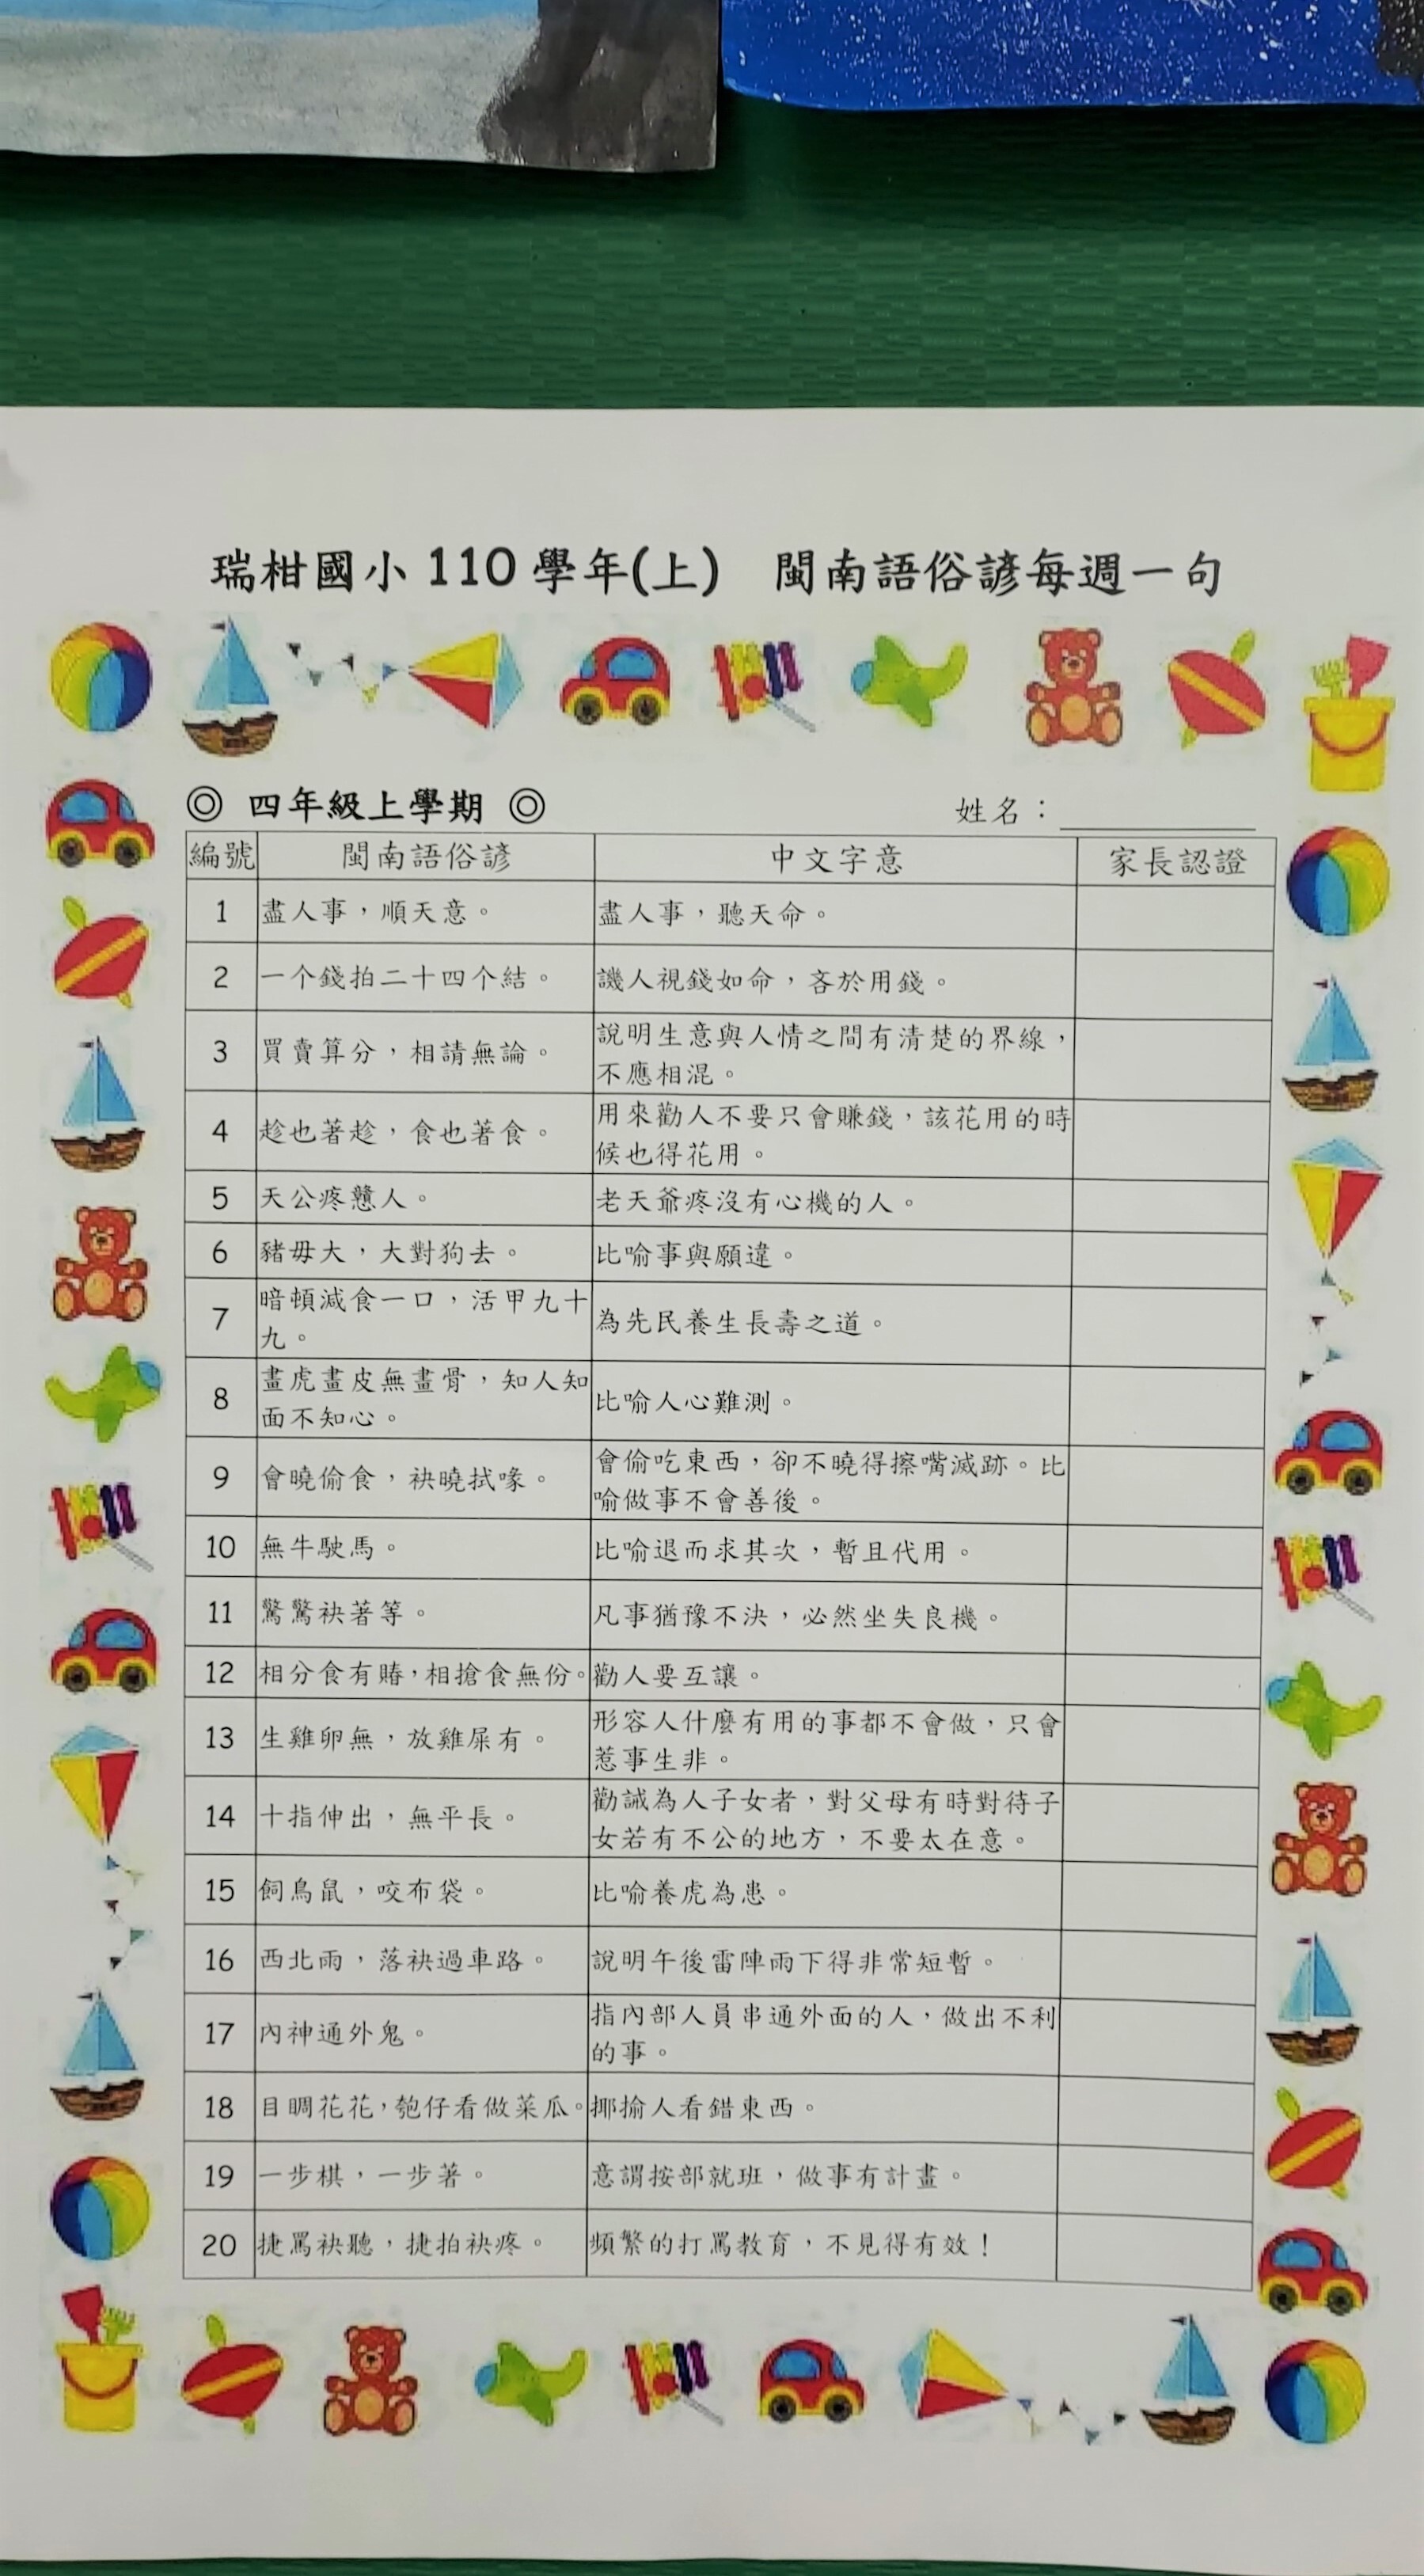 瑞柑國小 110 學年(上) 閩南語俗諺每週一句
◎ 四年級上學期 ◎ 姓名：
編號 閩南語俗諺 中文字意 家長認證
1 盡人事，順天意。 盡人事，聽天命。
2 一个錢拍二十四个結。 譏人視錢如命，吝於用錢。
3 買賣算分，相請無論。 說明生意與人情之間有清楚的界線，
不應相混。
4 趁也著趁，食也著食。 用來勸人不要只會賺錢，該花用的時
候也得花用。
5 天公疼戇人。 老天爺疼沒有心機的人。
6 豬毋大，大對狗去。 比喻事與願違。
7 暗頓減食一口，活甲九十
九。 為先民養生長壽之道。
8 畫虎畫皮無畫骨，知人知
面不知心。 比喻人心難測。
9 會曉偷食，袂曉拭喙。 會偷吃東西，卻不曉得擦嘴滅跡。比
喻做事不會善後。
10 無牛駛馬。 比喻退而求其次，暫且代用。
11 驚驚袂著等。 凡事猶豫不決，必然坐失良機。
12 相分食有賰，相搶食無份。 勸人要互讓。
13 生雞卵無，放雞屎有。 形容人什麼有用的事都不會做，只會
惹事生非。
14 十指伸出，無平長。 勸誡為人子女者，對父母有時對待子
女若有不公的地方，不要太在意。
15 飼鳥鼠，咬布袋。 比喻養虎為患。
16 西北雨，落袂過車路。 說明午後雷陣雨下得非常短暫。
17 內神通外鬼。 指內部人員串通外面的人，做出不利
的事。
18 目睭花花，匏仔看做菜瓜。 揶揄人看錯東西。
19 一步棋，一步著。 意謂按部就班，做事有計畫。
20 捷罵袂聽，捷拍袂疼。 頻繁的打罵教育，不見得有效！